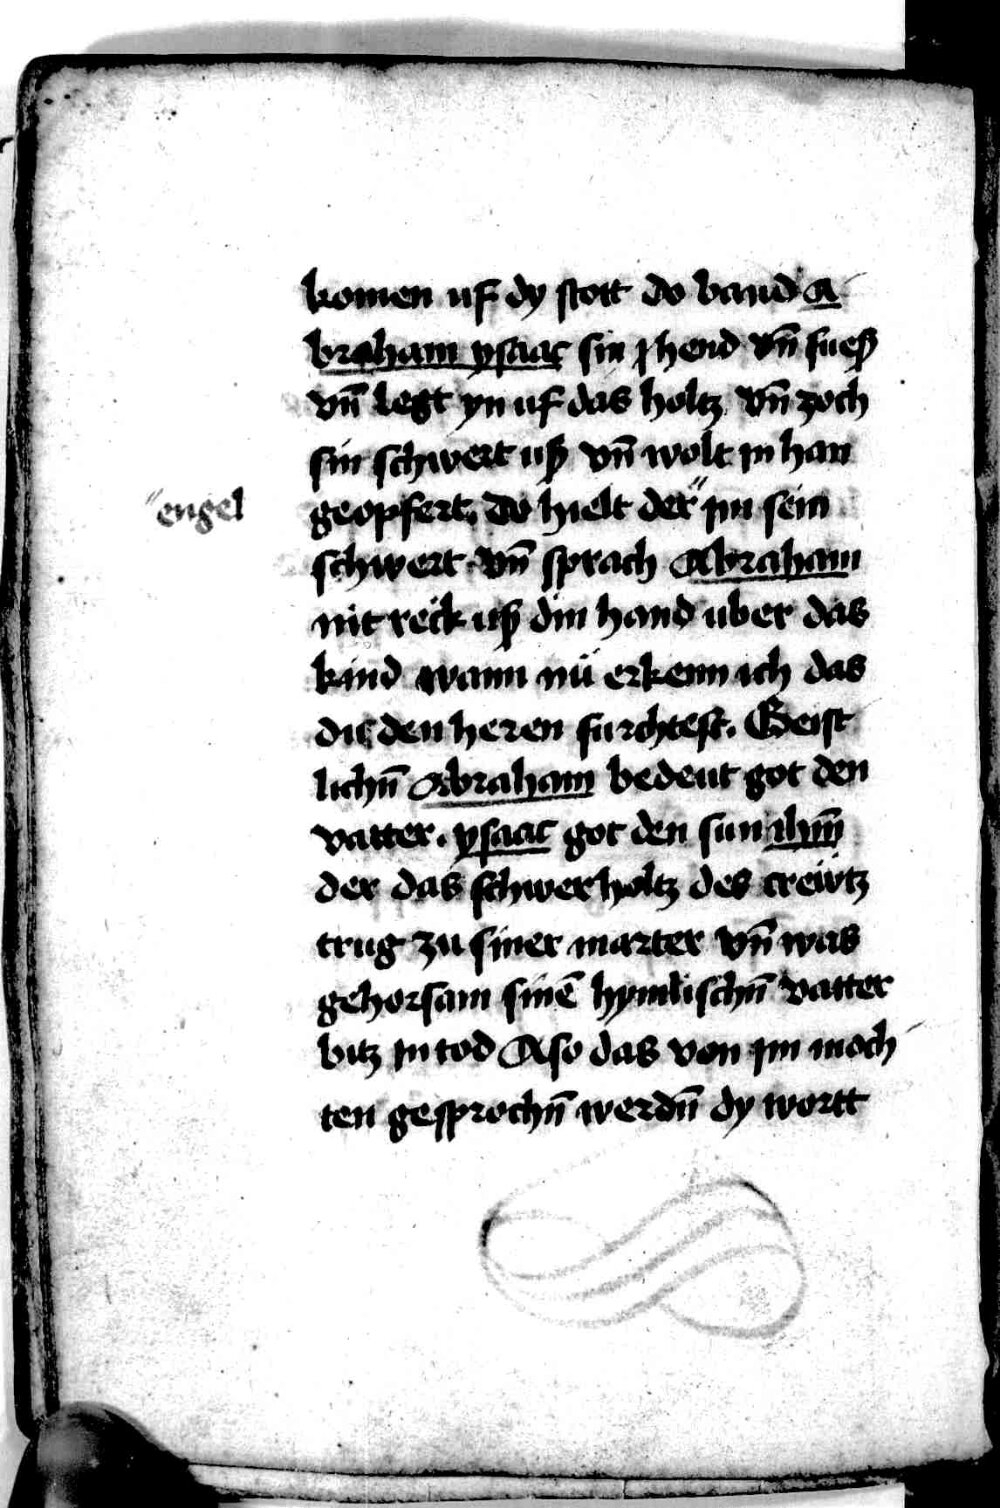 komen uf dy stott do band A
braham ysaac sin hend vn̄ fueß
vn̄ legt yn uf das holtz vn̄ zoch
sin schwert uß vn̄ wolt in han
geopfert. do hielt der" im sein
"engel
schwert vn̄ sprach Abraham
nit reck uß din hand uber das
kind wann nu erkenn ich das
du den heren furchtest. Geist
lichn̄ Abraham bedeut got den
vatter. ysaac got den sun ihm̄
der das schwer holtz des creütz
trug zu siner marter vn̄ was
gehorsam sinē hymlischn̄ vatter
bitz in tod Also das von im moch
ten gesprochn̄ werdn̄ dy wortt